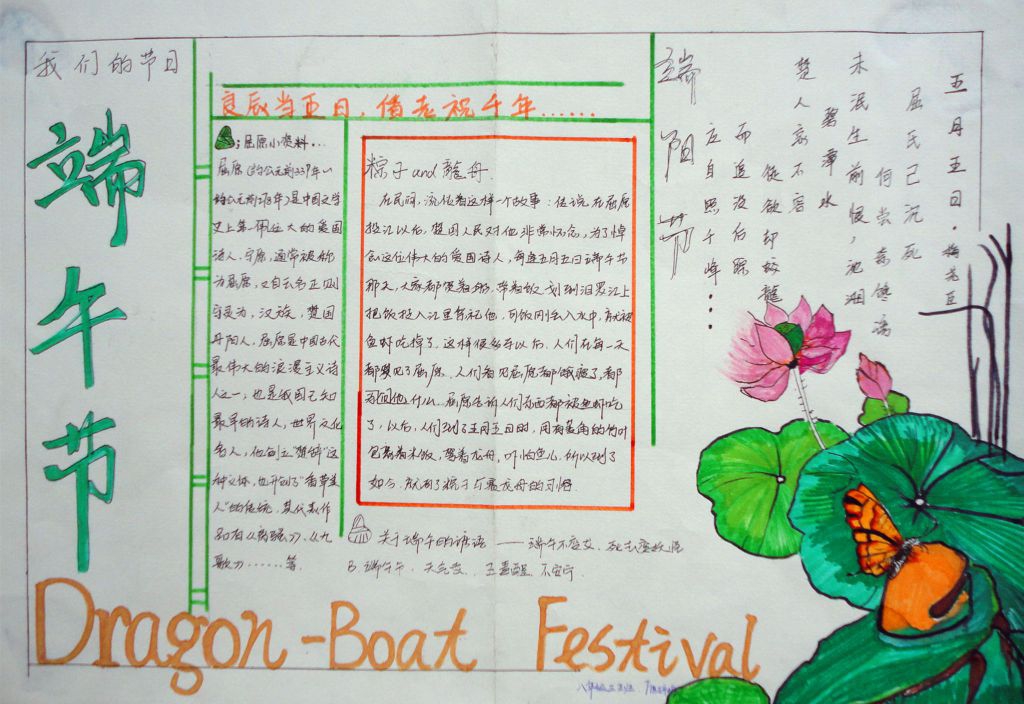 我们的节日
端午节
良辰当五日，偕老祝千年……
屈原小资料...
屈原（约公元前339年～
约公元前278年）是中国文学
史上第一位伟大的爱国
诗人。
为屈原，又自云名正则
汉族，楚国
丹阳人，屈原是中国古代
最伟大的浪漫主义诗
人之一，也是我国已知
最早的诗人，世界文化
名人，他创立"楚辞"这
种文体，也开创了"香草美
人"的传统，其代表作
品有《离骚》、《九
歌》……等。
粽子and龍舟
在民间，流传着这样一个故事：传说，在屈原
投江以后，楚国人民对他非常怀念，为了悼
念这位伟大的爱国诗人，每逢五月五日端午节
那天，大家都驾着船，带着饭划到汨罗江上
把饭投入江里祭祀他，可饭团丢入水中，
鱼虾吃掉了，这样很多年以后，人们在每一天
都梦见了屈原，人们看见屈原都饿瘦了，都
问他什么，屈原告诉人们东西都被鱼虾吃
了，以后，人们到了五月五日时，用有菱角的竹叶
包着米饭，驾着龙舟，吓怕鱼儿，所以到了
如今，就有了粽子与赛龙舟的习俗。
关于端午的谚语——端午不
B 端午午，天气变，五毒醒，不安宁
端阳节
五月五日·梅尧臣
屈氏已沉死
楚人哀不容
何尝奈谗谤
徒欲却蛟龍
未泯生前恨，
而追没后踪
碧潭水
应自照千峰...
Dragon-Boat Festival